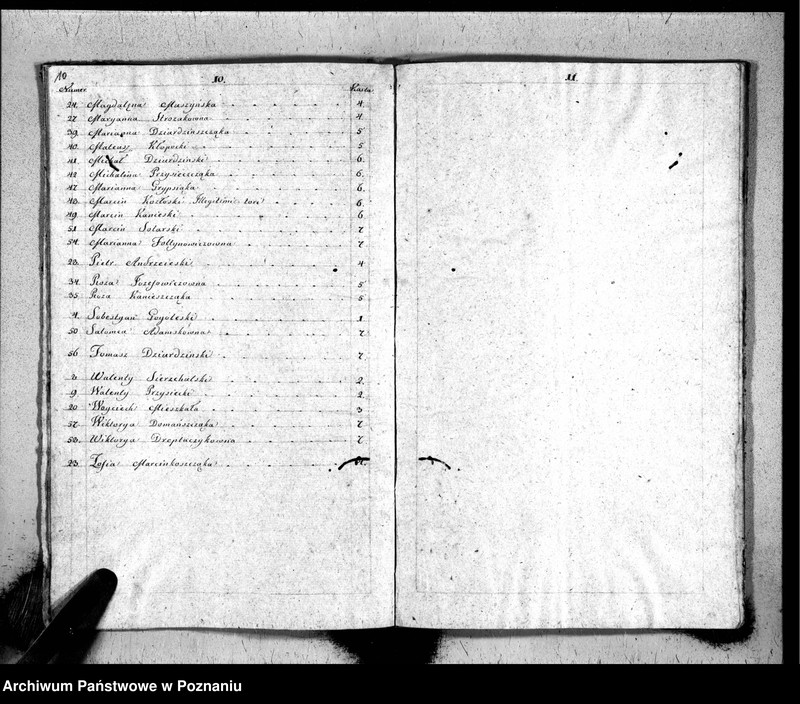 10
10.
Numer. Karta.
24. Magdalena Maszyńska 4.
27. Maryanna Strozakowna 4.
39. Marianna Dziardzinszcząka 5
40. Mateusz Kłopocki 5
41. Michał Dziardzinski 6.
42. Michalina Przysieccząka 6.
47. Marianna Grypsiąka 6.
48. Marcin Kozłoski Illegitimi tori 6
49. Marcin Kanieski 6
51. Marcin Solarski 7
54. Marianna Foltynowiczowna 7
23. Piotr Andrzeieski 4
34. Roza Jozefowiczowna 5
35. Roza Kanieszcząka 5
4. Sobestyan Gogoleski 1
50. Salomea Adamskowna 7
56. Tomasz Dziardzinski 7
Walenty Sierzchulski 2.
9. Walenty Przysiecki 2.
20. Woyciech Mieszkała 3
57. Wiktorya Domańszcząka 7
53. Wiktorya Dreptaczykowna 7
23. Zofia Marcinkoszcząka
11.
Archiwum Państwowe w Poznaniu